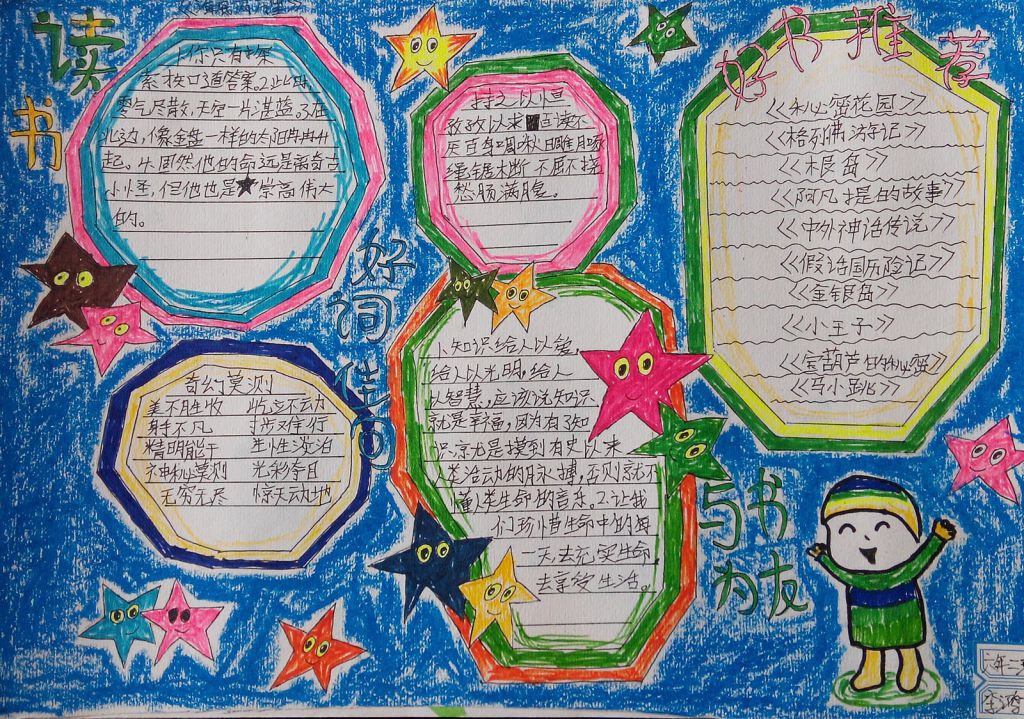 读书
1.你只有探
索,校口道答案。2.此时,
雾气尽散,天空一片湛蓝。3.在
北边,像金盘一样的太阳冉冉升
起。4.固然他的命远是离奇古
小怪,但他也是崇高伟大
的。
持之以恒
孜孜以求
绳锯木断 不屈不挠
愁肠满腹。
好书推荐
《秘密花园》
《格列佛游记》
《木艮岛》
《阿凡提的故事》
《中外神话传说》
《假话国历险记》
《金银岛》
《小王子》
《宝葫芦的秘密》
《马小跳》
好词佳句
奇幻莫测
美不胜收 屹立不动
身手不凡
精明能干 生性淡泊
神秘莫测 光彩夺目
无穷无尽 惊天动地
1.知识给人以爱,
给人以光明,给人
以智慧,应该说知识
就是幸福,因为有了知
识,就是摸到有史以来
人类活动的脉搏,否则就不
懂人类生命的音乐。2.让我
们珍惜生命中的每
一天,去充实生命,
去享受生活。
与书为友